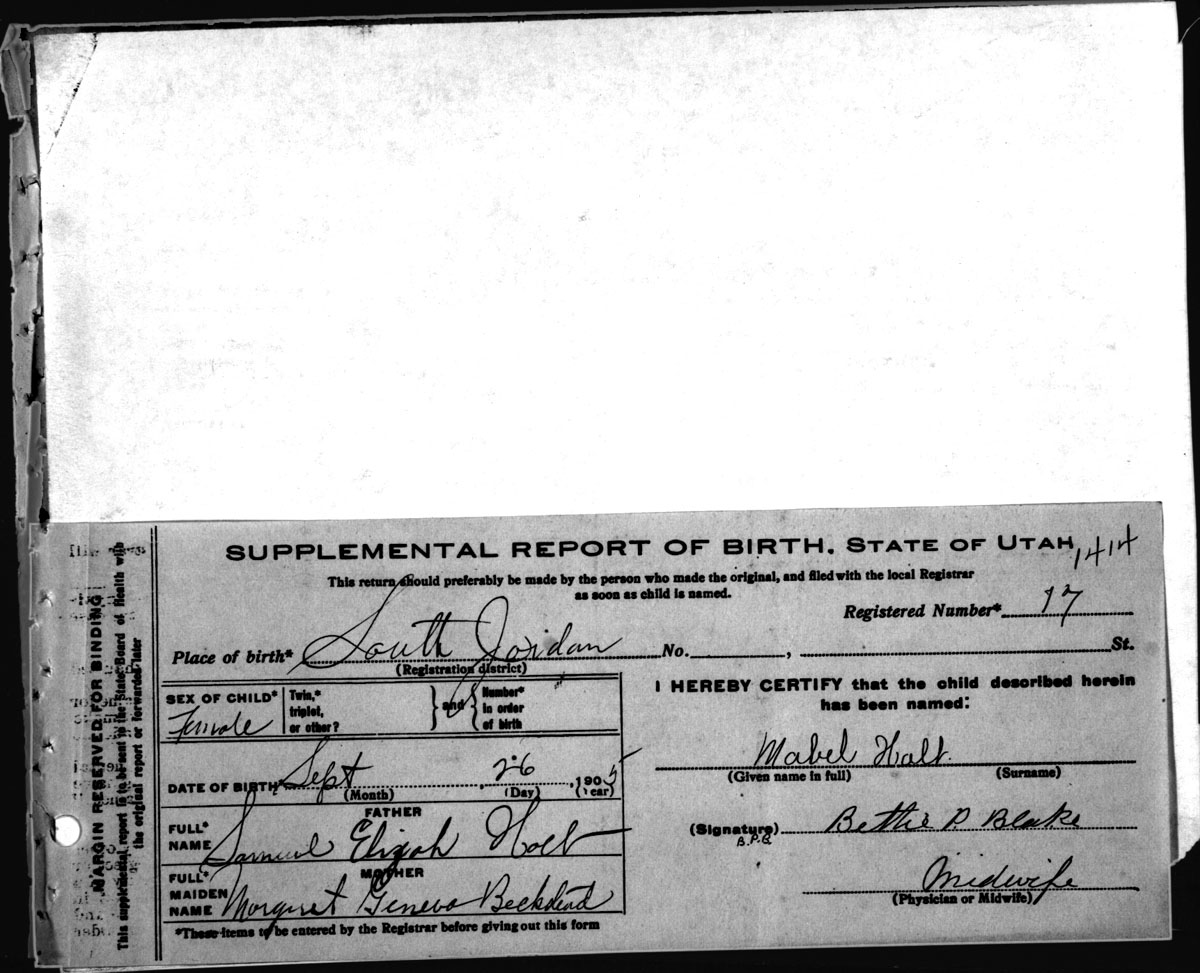 SUPPLEMENTAL REPORT OF BIRTH. STATE OF UTAH
1414
This return should preferably be made by the person who made the original, and filed with the local Registrar
as soon as child is named.
Registered Number* 17
Place of birth* South Jordan No. , St.
(Registration district)
SEX OF CHILD* Female
Twin,* triplet, or other?
and
Number* in order of birth
DATE OF BIRTH* Sept 26, 1905
(Month) (Day) (Year)
FATHER
FULL* NAME Samuel Elijah Holt
MOTHER
FULL* MAIDEN NAME Margaret Geneva Beckstead
*These items to be entered by the Registrar before giving out this form
I HEREBY CERTIFY that the child described herein
has been named:
Mabel Holt.
(Given name in full) (Surname)
(Signature) Bettie P. Blake
B.P.B
Midwife
(Physician or Midwife)
MARGIN RESERVED FOR BINDING
This supplemental report is to be sent to the State Board of Health with
the original report or forwarded later